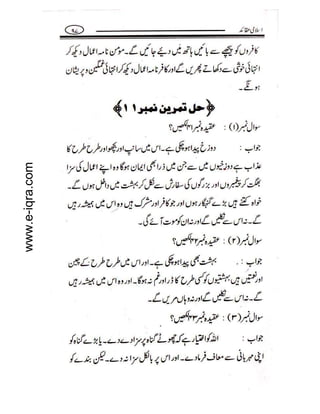 اسلامی عقائد
۹۷
کافروں کو پیچھے سے بائیں ہاتھ میں دیئے جائیں گے۔ مؤمن نامہ اعمال دیکھ کر
انتہائی خوشی سے دکھاتے پھریں گے اور کافر نامہ اعمال دیکھ کر انتہائی غمگین و پریشان
ہونگے۔
﴿حل تمرین نمبر ۱۱﴾
سوال نمبر (۱) : عقیدہ نمبر ۴۱ لکھیں؟
جواب : دوزخ پیدا ہو چکی ہے۔ اس میں سانپ اور بچھو اور طرح طرح کا
عذاب ہے دوزخیوں میں سے جن میں ذرا بھی ایمان ہوگا وہ اپنے اعمال کی سزا
بھگت کر پیغمبروں اور بزرگوں کی سفارش سے نکل کر بہشت میں داخل ہوں گے۔
خواہ کتنے ہیں بڑے گنہگار ہوں اور جو کافر اور مشرک ہیں وہ اس میں ہمیشہ رہیں
گے۔ نہ اس سے نکلیں گے اور نہ ان کو موت آئے گی۔
سوال نمبر (۲) : عقیدہ نمبر ۴۲ لکھیں؟
جواب : بہشت بھی پیدا ہو چکی ہے۔ اور اس میں طرح طرح کے چین
اور نعمتیں ہیں بہشتیوں کو کسی طرح کا ڈر اور غم نہ ہوگا۔ اور وہ اس میں ہمیشہ رہیں
گے۔ نہ اس سے نکلیں گے اور نہ وہاں مریں گے۔
سوال نمبر (۳) : عقیدہ نمبر ۴۳ لکھیں؟
جواب : اللہ کو اختیار ہے کہ چھوٹے گناہ پر سزا دے دے۔ یا بڑے گناہ کو
اپنی مہربانی سے معاف فرما دے۔ اور اس پر بالکل سزا نہ دے۔ لیکن بندے کو
www.e-iqra.com